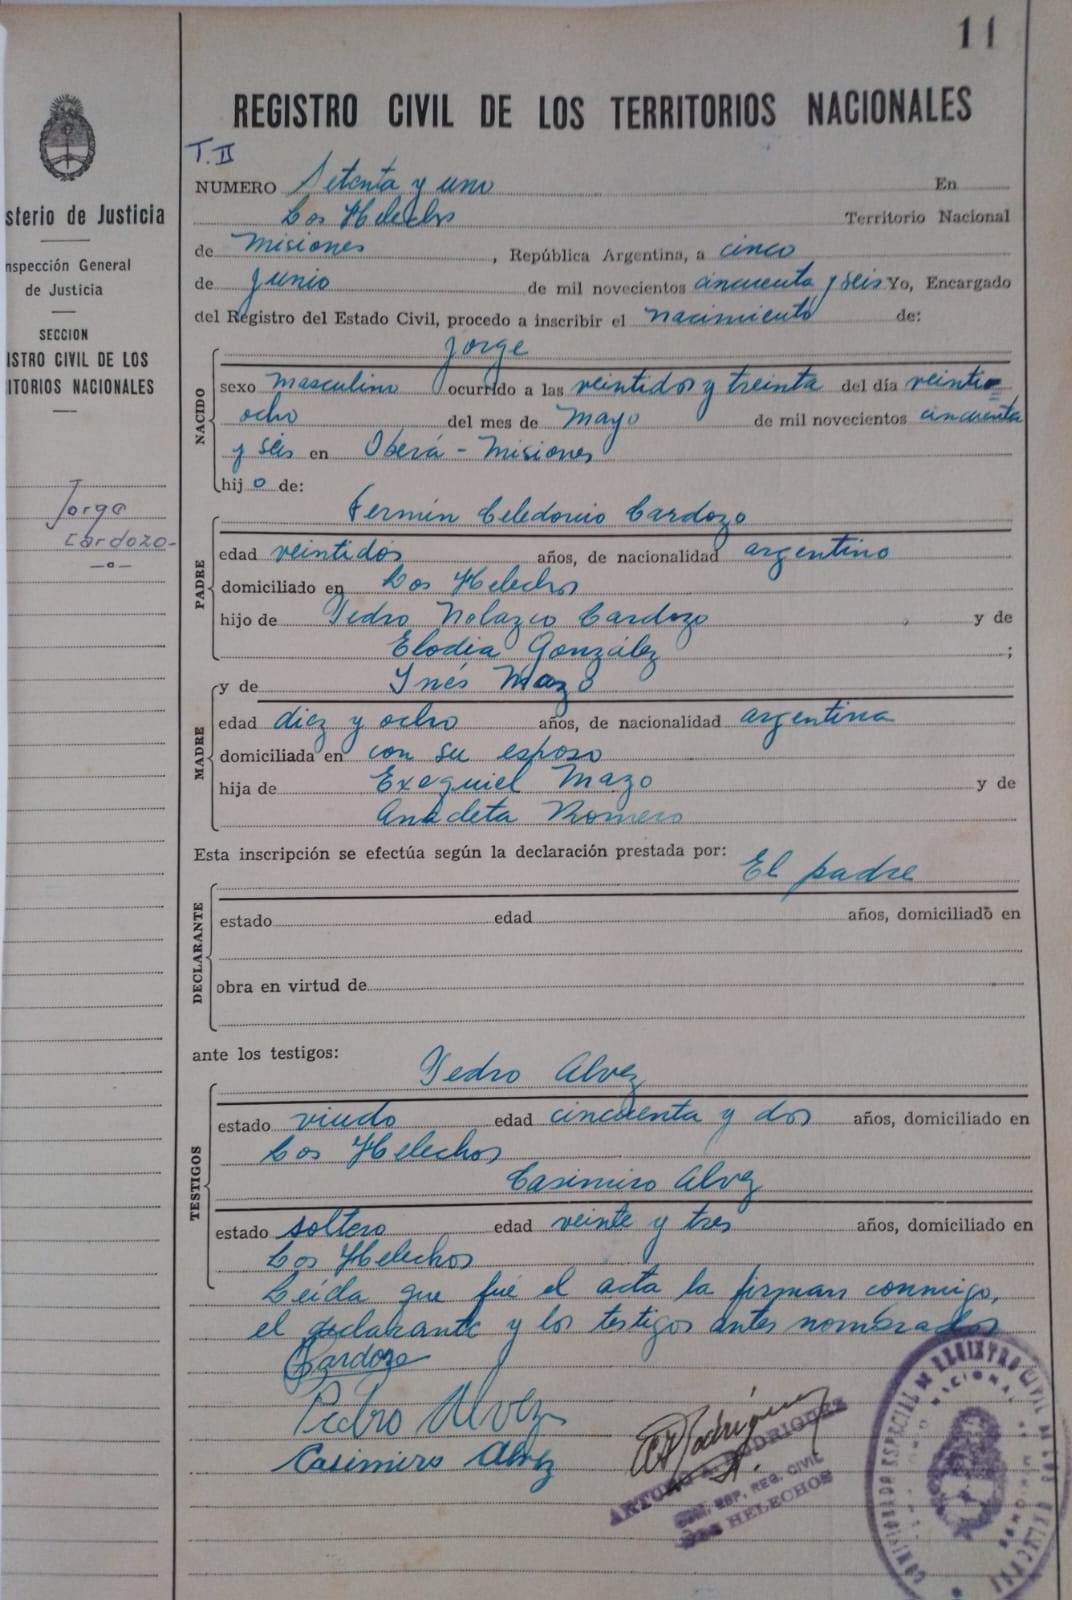 11
REGISTRO CIVIL DE LOS TERRITORIOS NACIONALES
T. II
NUMERO Setenta y uno En
Los Helechos Territorio Nacional
de Misiones, República Argentina, a cinco
de Junio de mil novecientos cincuenta y seis Yo, Encargado
del Registro del Estado Civil, procedo a inscribir el nacimiento de:
NACIDO
Jorge
sexo masculino ocurrido a las veintidos y treinta del día veinti=
ocho del mes de Mayo de mil novecientos cincuenta
y seis en Oberá - Misiones
hijo de:
PADRE
Fermín Celedonio Cardozo
edad veintidos años, de nacionalidad argentino
domiciliado en Los Helechos
hijo de Pedro Nolazco Cardozo y de
Elodia González ;
MADRE
y de Inés Mazo
edad diez y ocho años, de nacionalidad argentina
domiciliada en con su esposo
hija de Exequiel Mazo y de
Anacleta Romero
Esta inscripción se efectúa según la declaración prestada por: El padre
DECLARANTE
estado edad años, domiciliado en
obra en virtud de
ante los testigos:
TESTIGOS
Pedro Alvez
estado viudo edad cincuenta y dos años, domiciliado en
Los Helechos
Casimiro Alvez
estado soltero edad veinte y tres años, domiciliado en
Los Helechos
Leída que fué el acta la firman conmigo,
el declarante y los testigos antes nombrados
Cardozo
Pedro Alvez
Casimiro Alvez
Rodríguez
ARTURO A. RODRIGUEZ
REG. CIVIL
LOS HELECHOS
REGISTRO CIVIL DE LOS
sterio de Justicia
nspección General
de Justicia
SECCION
ISTRO CIVIL DE LOS
ITORIOS NACIONALES
Jorge
Cardozo-
—o—